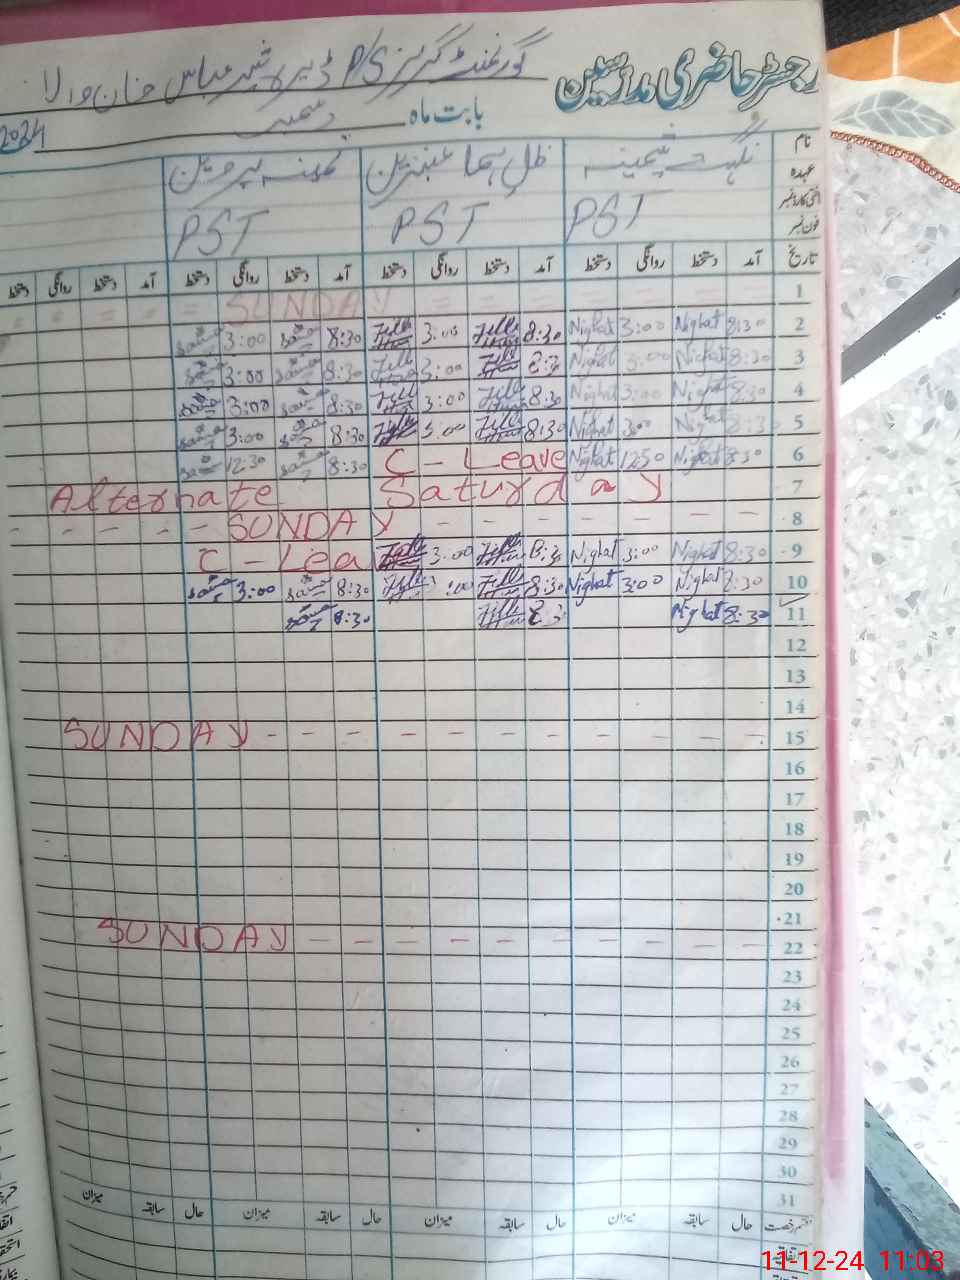 رجسٹر حاضری مدرسین
گورنمنٹ گرلز P/S ڈیرہ شیر عباس خان والا
بابت ماہ دسمبر 2024
نام نگہت ثمینہ ظل ہما عنبرین ثمینہ پروین
عہدہ PST PST PST
شناختی کارڈ نمبر
فون نمبر
تاریخ آمد دستخط روانگی دستخط آمد دستخط روانگی دستخط آمد دستخط روانگی دستخط آمد دستخط روانگی دستخط
1 = = SUNDAY = =
2 8:30 Nighat 3:00 Nighat 8:30 3:00 8:30 3:00
3 8:30 Nighat 3:00 Nighat 8:30 3:00 8:30 3:00
4 8:30 Nighat 3:00 Nighat 8:30 3:00 8:30 3:00
5 8:30 Nighat 3:00 Nighat 8:30 3:00 8:30 3:00
6 8:30 Nighat 12:30 Nighat C - Leave 8:30 12:30
7 Alternate Saturday
8 - - - - SUNDAY - - - -
9 8:30 Nighat 3:00 Nighat 8:30 3:00 C - Lea
10 8:30 Nighat 3:00 Nighat 8:30 :00 8:30 3:00
11 8:30 Nighat 8:30 8:30
12
13
14
15 SUNDAY - - - - - - - - - - - -
16
17
18
19
20
21
22 SUNDAY - - - - - - - - - - -
23
24
25
26
27
28
29
30
31
قسم رخصت حال سابقہ میزان حال سابقہ میزان حال سابقہ میزان حال سابقہ میزان
اتفاقیہ
11-12-24 11:03